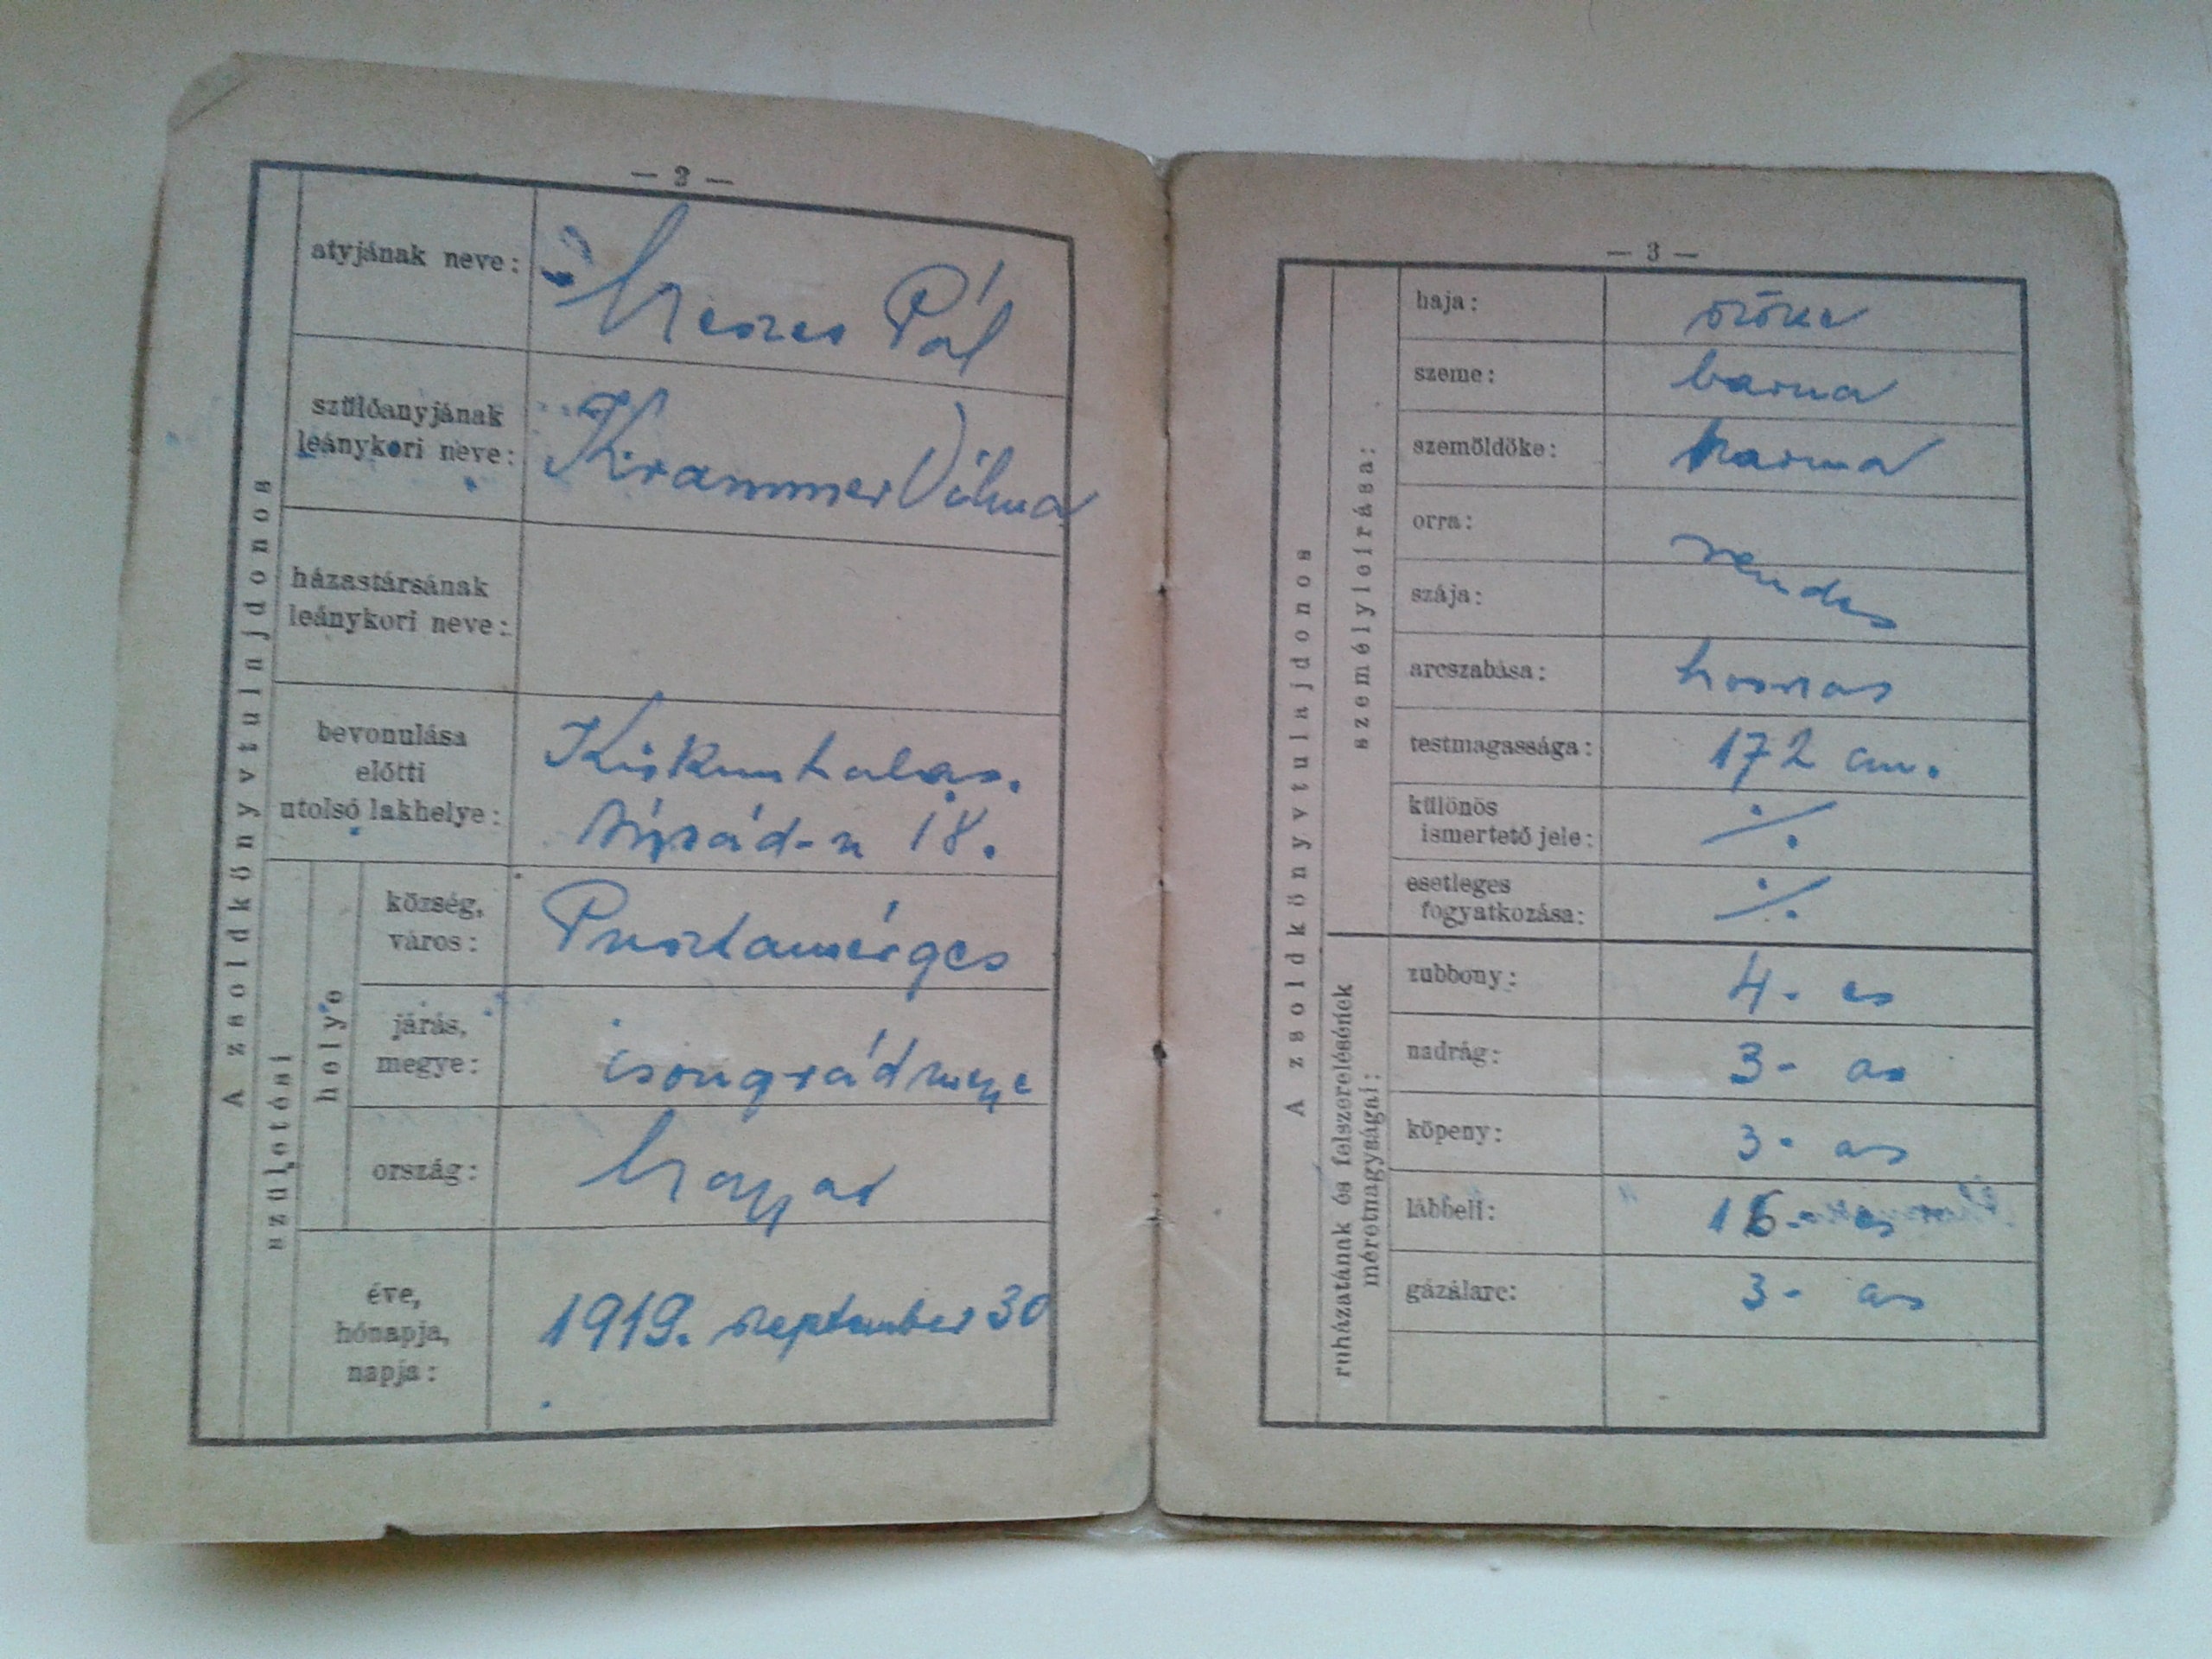 — 2 —
A zsoldkönyvtulajdonos
atyjának neve:
Mészes Pál
szülőanyjának
leánykori neve:
Krammer Vilma
házastársának
leánykori neve:
bevonulása
előtti
utolsó lakhelye:
Kiskunhalas.
18.
születési
helye
község,
város:
Pusztamérges
járás,
megye:
Csongrád megye
ország:
Magyar
éve,
hónapja,
napja:
1919. szeptember 30
— 3 —
A zsoldkönyvtulajdonos
személyleírása:
haja:
szőke
szeme:
barna
szemöldöke:
barna
orra:
rendes
szája:
arcszabása:
hosszas
testmagassága:
172 cm.
különös
ismertető jele:
·/.
esetleges
fogyatkozása:
·/.
ruházatának és felszerelésének
méretnagyságai:
zubbony:
4- es
nadrág:
3- as
köpeny:
3- as
lábbeli:
16- es
gázálarc:
3- as